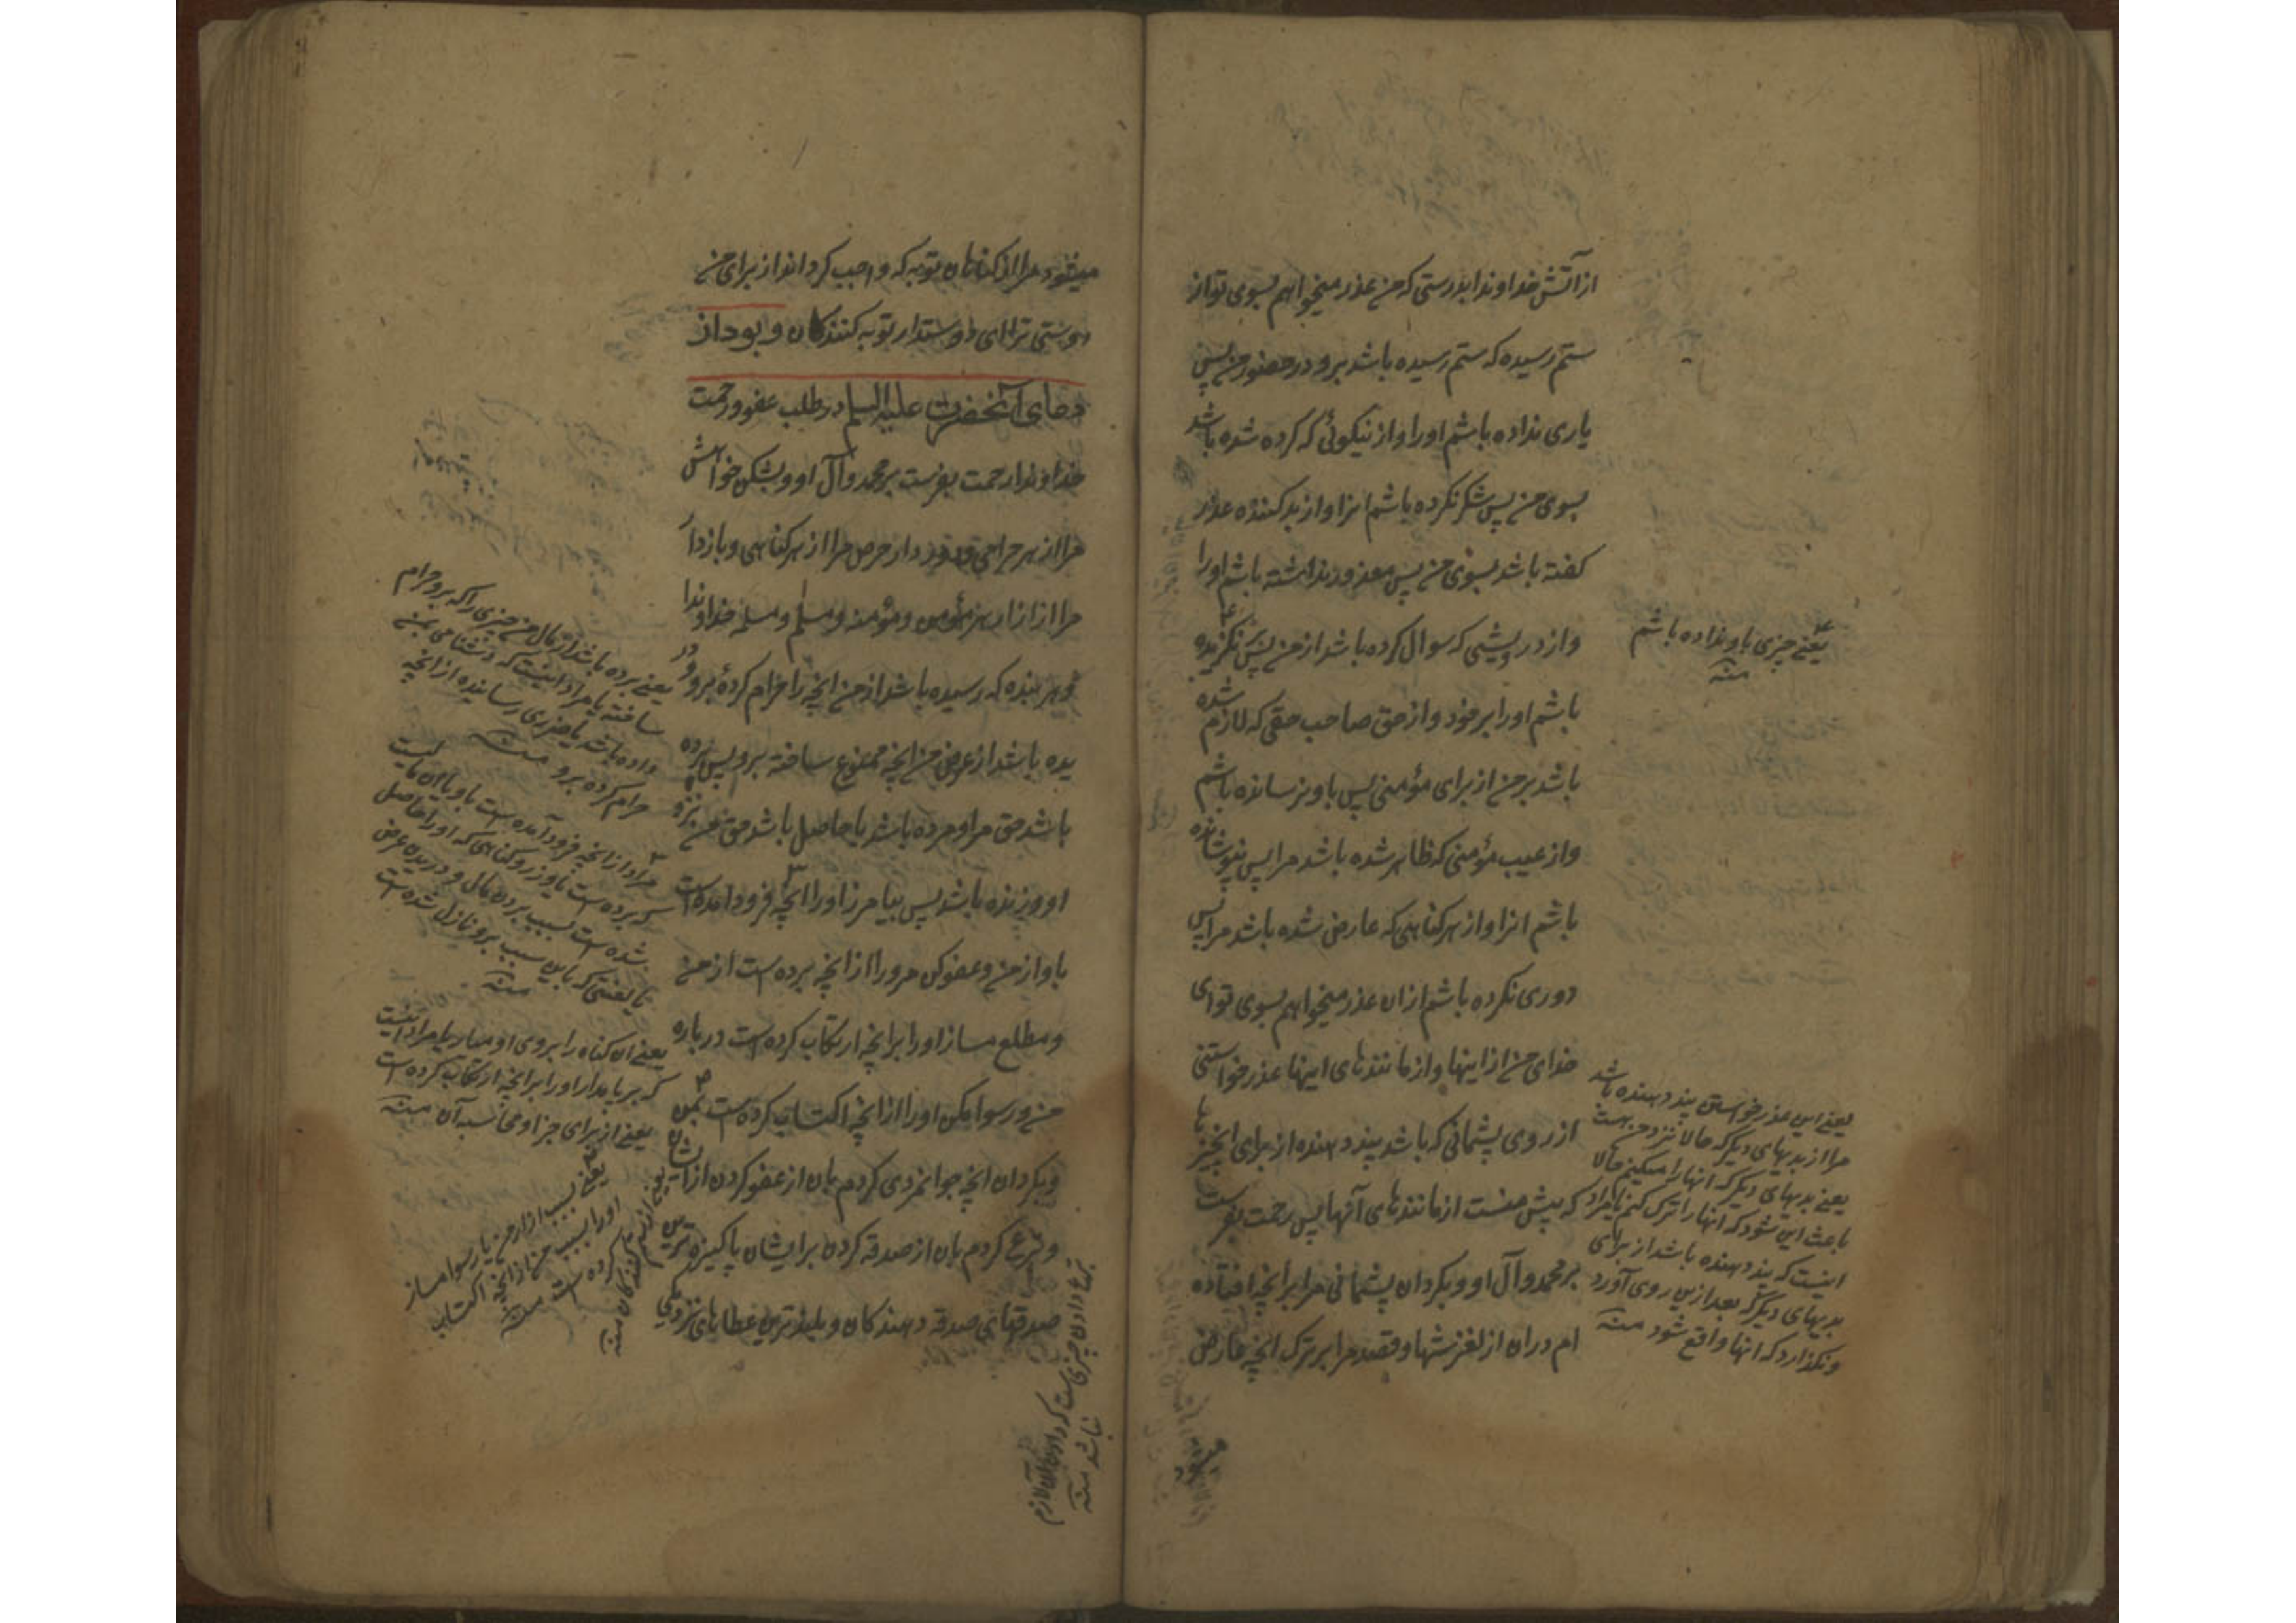 از آتش خداوندا بدرستی که من عذر میخواهم بسوی تو از
ستم رسیده که ستم رسیده باشد برو در حضور من پس
یاری نداده باشم او را و از نیکوئی که کرده شده باشد
بسوی من پس شکر نکرده باشم انرا و از بد کننده عذر
کفته باشد بسوی من پس معذور نداشته باشم او را
و از درویشی که سوال کرده باشد از من پس نکزیده
باشم او را بر خود و از حق صاحب حقی که لازم شده
باشد بر من از برای مؤمنی پس باو نرسانده باشم
و از عیب مؤمنی که ظاهر شده باشد مرا پس نپوشانده
باشم انرا و از هر کناهی که عارض شده باشد مرا پس
دوری نکرده باشم ازان عذر میخواهم بسوی تو ای
خدای من از اینها و از مانندهای اینها عذر خواستنی
از روی پشیمانی که باشد پند دهنده از برای انچیزها
که پیش منست از مانندهای آنها پس رحمت بفرست
بر محمد و آل او و بکردان پشیمانی مرا بر انچه افتاده
ام دران از لغزشها و قصد مرا بر ترک انچه عارض
یعنے چیزی باو نداده باشم
منه
یعنے این عذر خواستن پند دهنده باشد
مرا از بدیهای دیکر که حالا نزد من است
یعنے بدیهای دیکر که انها را میکنم حالا
باعث این شود که انها را ترک کنم یا مراد
اینست که پند دهنده باشد از برای
بدیهای دیکر که بعد ازین روی آورد
و نکذارد که انها واقع شود منه
میشود مرا از کناهان توبه که واجب کرداند از برای من
دوستی ترا ای دوستدار توبه کنندکان و بود از
دعای آنحضرت علیه السلم در طلب عفو و رحمت
خداوندا رحمت بفرست بر محمد و آل او و بشکن خواهش
مرا از هر حرامی و دور دار حرص مرا از هر کناهی و باز دار
مرا از ازار هر مؤمن و مؤمنه و مسلم و مسلمه خداوندا
و هر بنده که رسیده باشد از من انچه را حرام کردۀ برو و در
یده باشد از عرض من انچه ممنوع ساخته برو پس برده
باشد حق مرا و مرده باشد یا حاصل باشد حق من نزد
او و زنده باشد پس بیامرز او را انچه فرود امده است
باو از من و عفو کن مرورا از انچه برده است از من
و مطلع مساز او را بر انچه ارتکاب کرده است درباره
من و رسوا مکن او را از انچه اکتساب کرده است بمن
و بکردان انچه جوانمردی کردم بان از عفو کردن از ایشان
و تبرع کردم بان از صدقه کردن بر ایشان پاکیزه ترین
صدقهای صدقه دهندکان و بلندترین عطاهای نزدیکی
یعنے برده باشد از مال من چیزی را که برو حرام
ساخته یا مراد اینست که دشنامی بمن
داده باشد یا ضرری رسانیده از انچه
حرام کرده برو منه
مراد از انچه فرود آمده است باو یا ان مالیست
که برده است یا وزر و کناهی که او را حاصل
شده است بسبب بردن مال و دریدن عرض
یا لعنتی که باین سبب برو نازل شده است
منه
یعنے ان کناه را بروی او میار یا مراد اینست
که برپا مدار او را بر انچه ارتکاب کرده است
یعنے از برای جزا و محاسبه آن منه
یعنے بسبب ازار من یا رسوا مساز
او را بسبب من از انچه اکتساب
کرده است منه
تبرعا دادن چیزی است که دادن آن لازم
نباشد منه